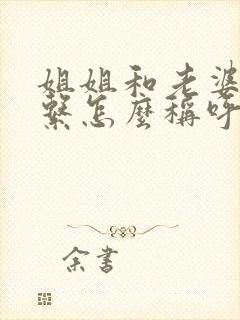 姐姐和老婆
繫怎麼稱呼
余書